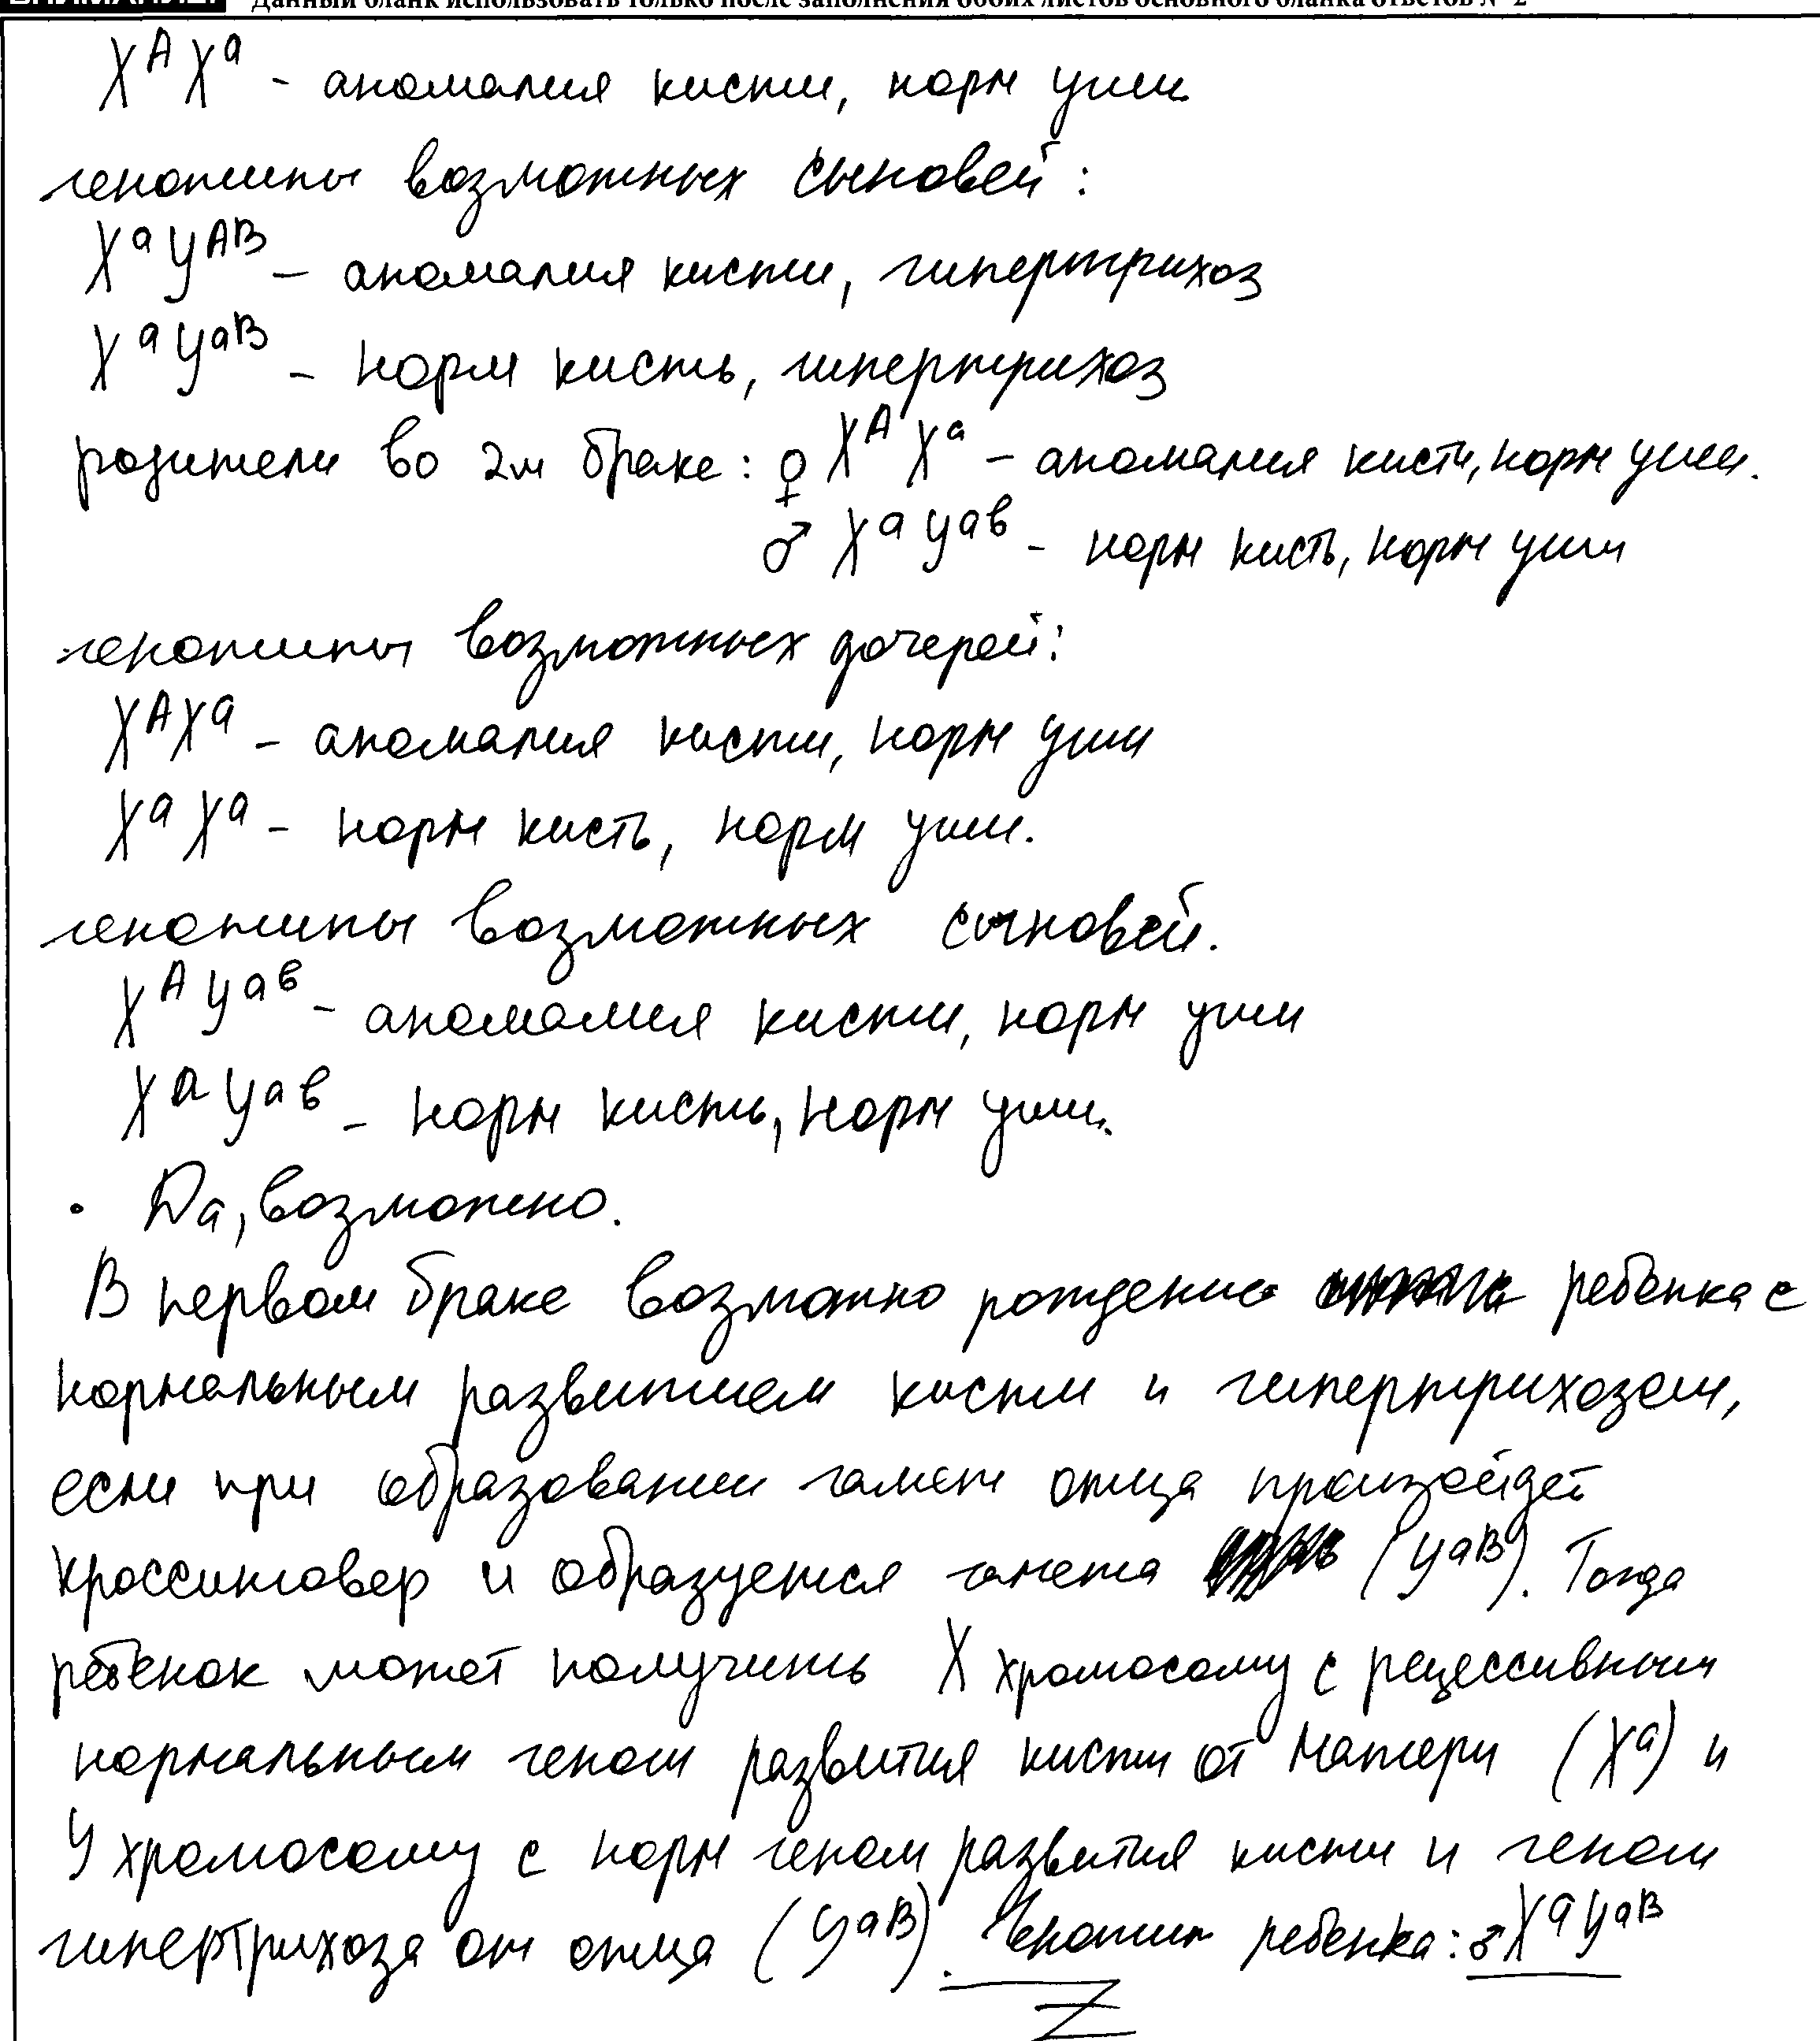 ВНИМАНИЕ! Данный бланк использовать только после заполнения обоих листов основного бланка ответов № 2
X^A X^a - аномалия кисти, норм уши
генотипы возможных сыновей:
X^a У^AB - аномалия кисти, гипертрихоз
X^a У^aB - норм кисть, гипертрихоз
родители во 2м браке: ♀ X^A X^a - аномалия кисти, норм уши.
♂ X^a У^ab - норм кисть, норм уши
генотипы возможных дочерей:
X^A X^a - аномалия кисти, норм уши
X^a X^a - норм кисть, норм уши.
генотипы возможных сыновей.
X^A У^ab - аномалия кисти, норм уши
X^a У^ab - норм кисть, норм уши.
• Да, возможно.
В первом браке возможно рождение ребенка с
нормальным развитием кисти и гипертрихозом,
если при образовании гамет отца произойдет
кроссинговер и образуется гамета (У^aB). Тогда
ребенок может получить X хромосому с рецессивным
нормальным геном развития кисти от матери (X^a) и
У хромосому с норм геном развития кисти и геном
гипертрихоза от отца (У^aB). Генотип ребенка: ♂ X^a У^aB